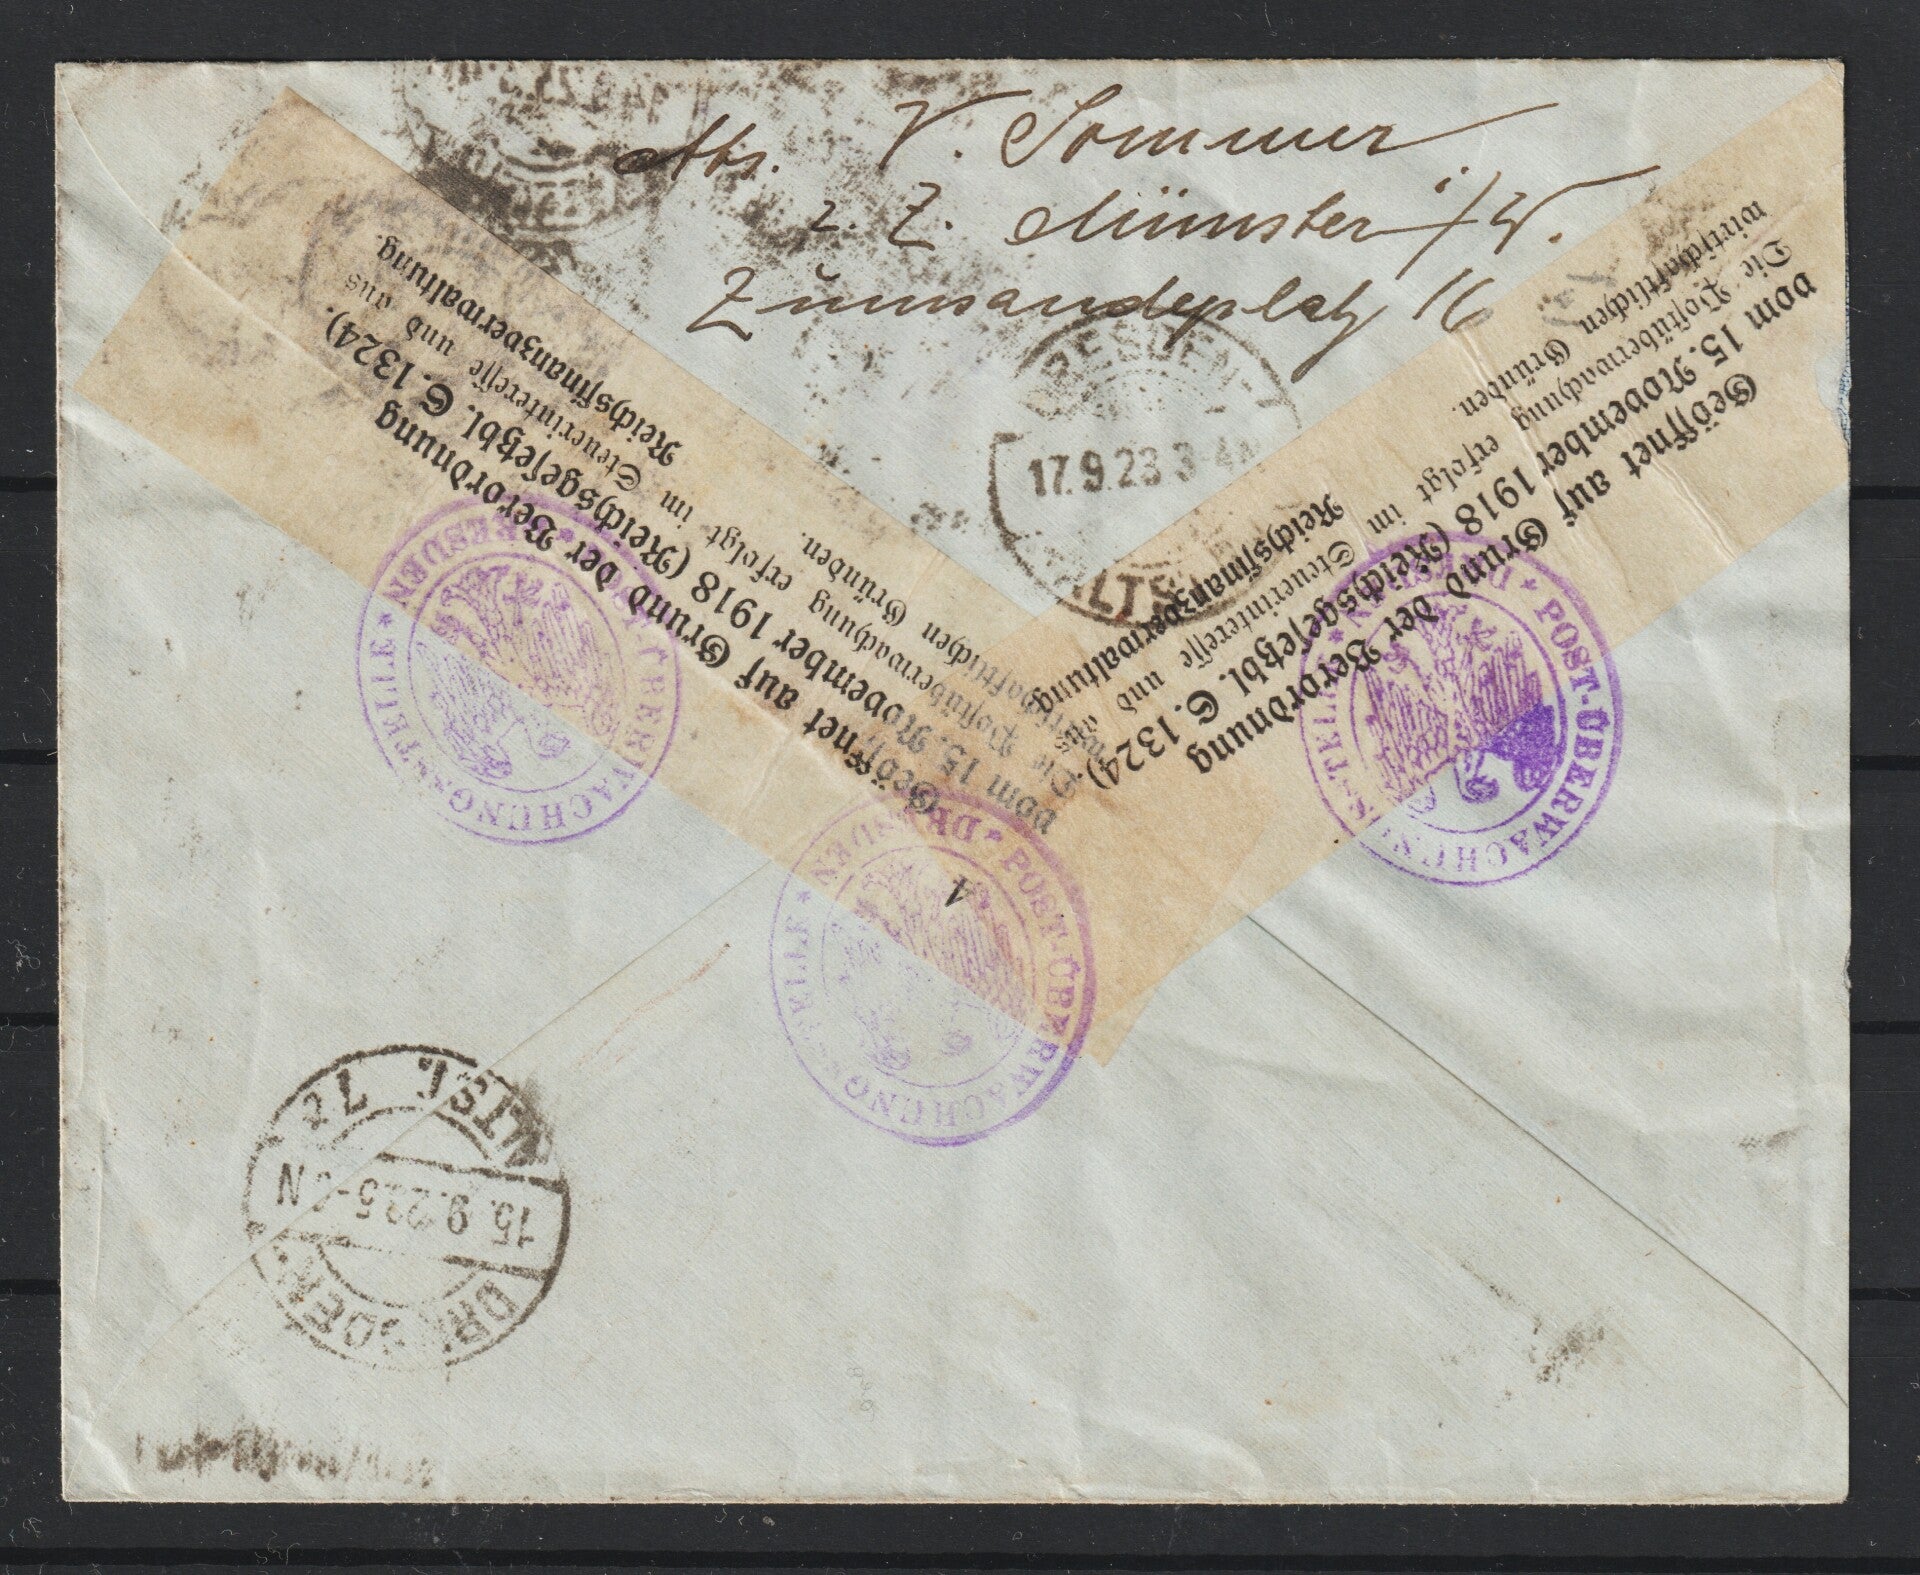 Abs. V. Sommer
z. Z. Münster i/W.
Zumsandeplatz 16
Geöffnet auf Grund der Verordnung
vom 15. November 1918 (Reichsgesetzbl. S. 1324).
Die Postüberwachung erfolgt im Steuerinteresse und aus
wirtschaftlichen Gründen. Reichsfinanzverwaltung.
Geöffnet auf Grund der Verordnung
vom 15. November 1918 (Reichsgesetzbl. S. 1324).
Die Postüberwachung erfolgt im Steuerinteresse und aus
wirtschaftlichen Gründen. Reichsfinanzverwaltung.
DRESDEN
17.9.23 3-4
ALTST
* POST-ÜBERWACHUNGS-STELLE * DRESDEN
* POST-ÜBERWACHUNGS-STELLE * DRESDEN
* POST-ÜBERWACHUNGS-STELLE * DRESDEN
DRESDEN
15.9.23 5- N
ALTST. 72